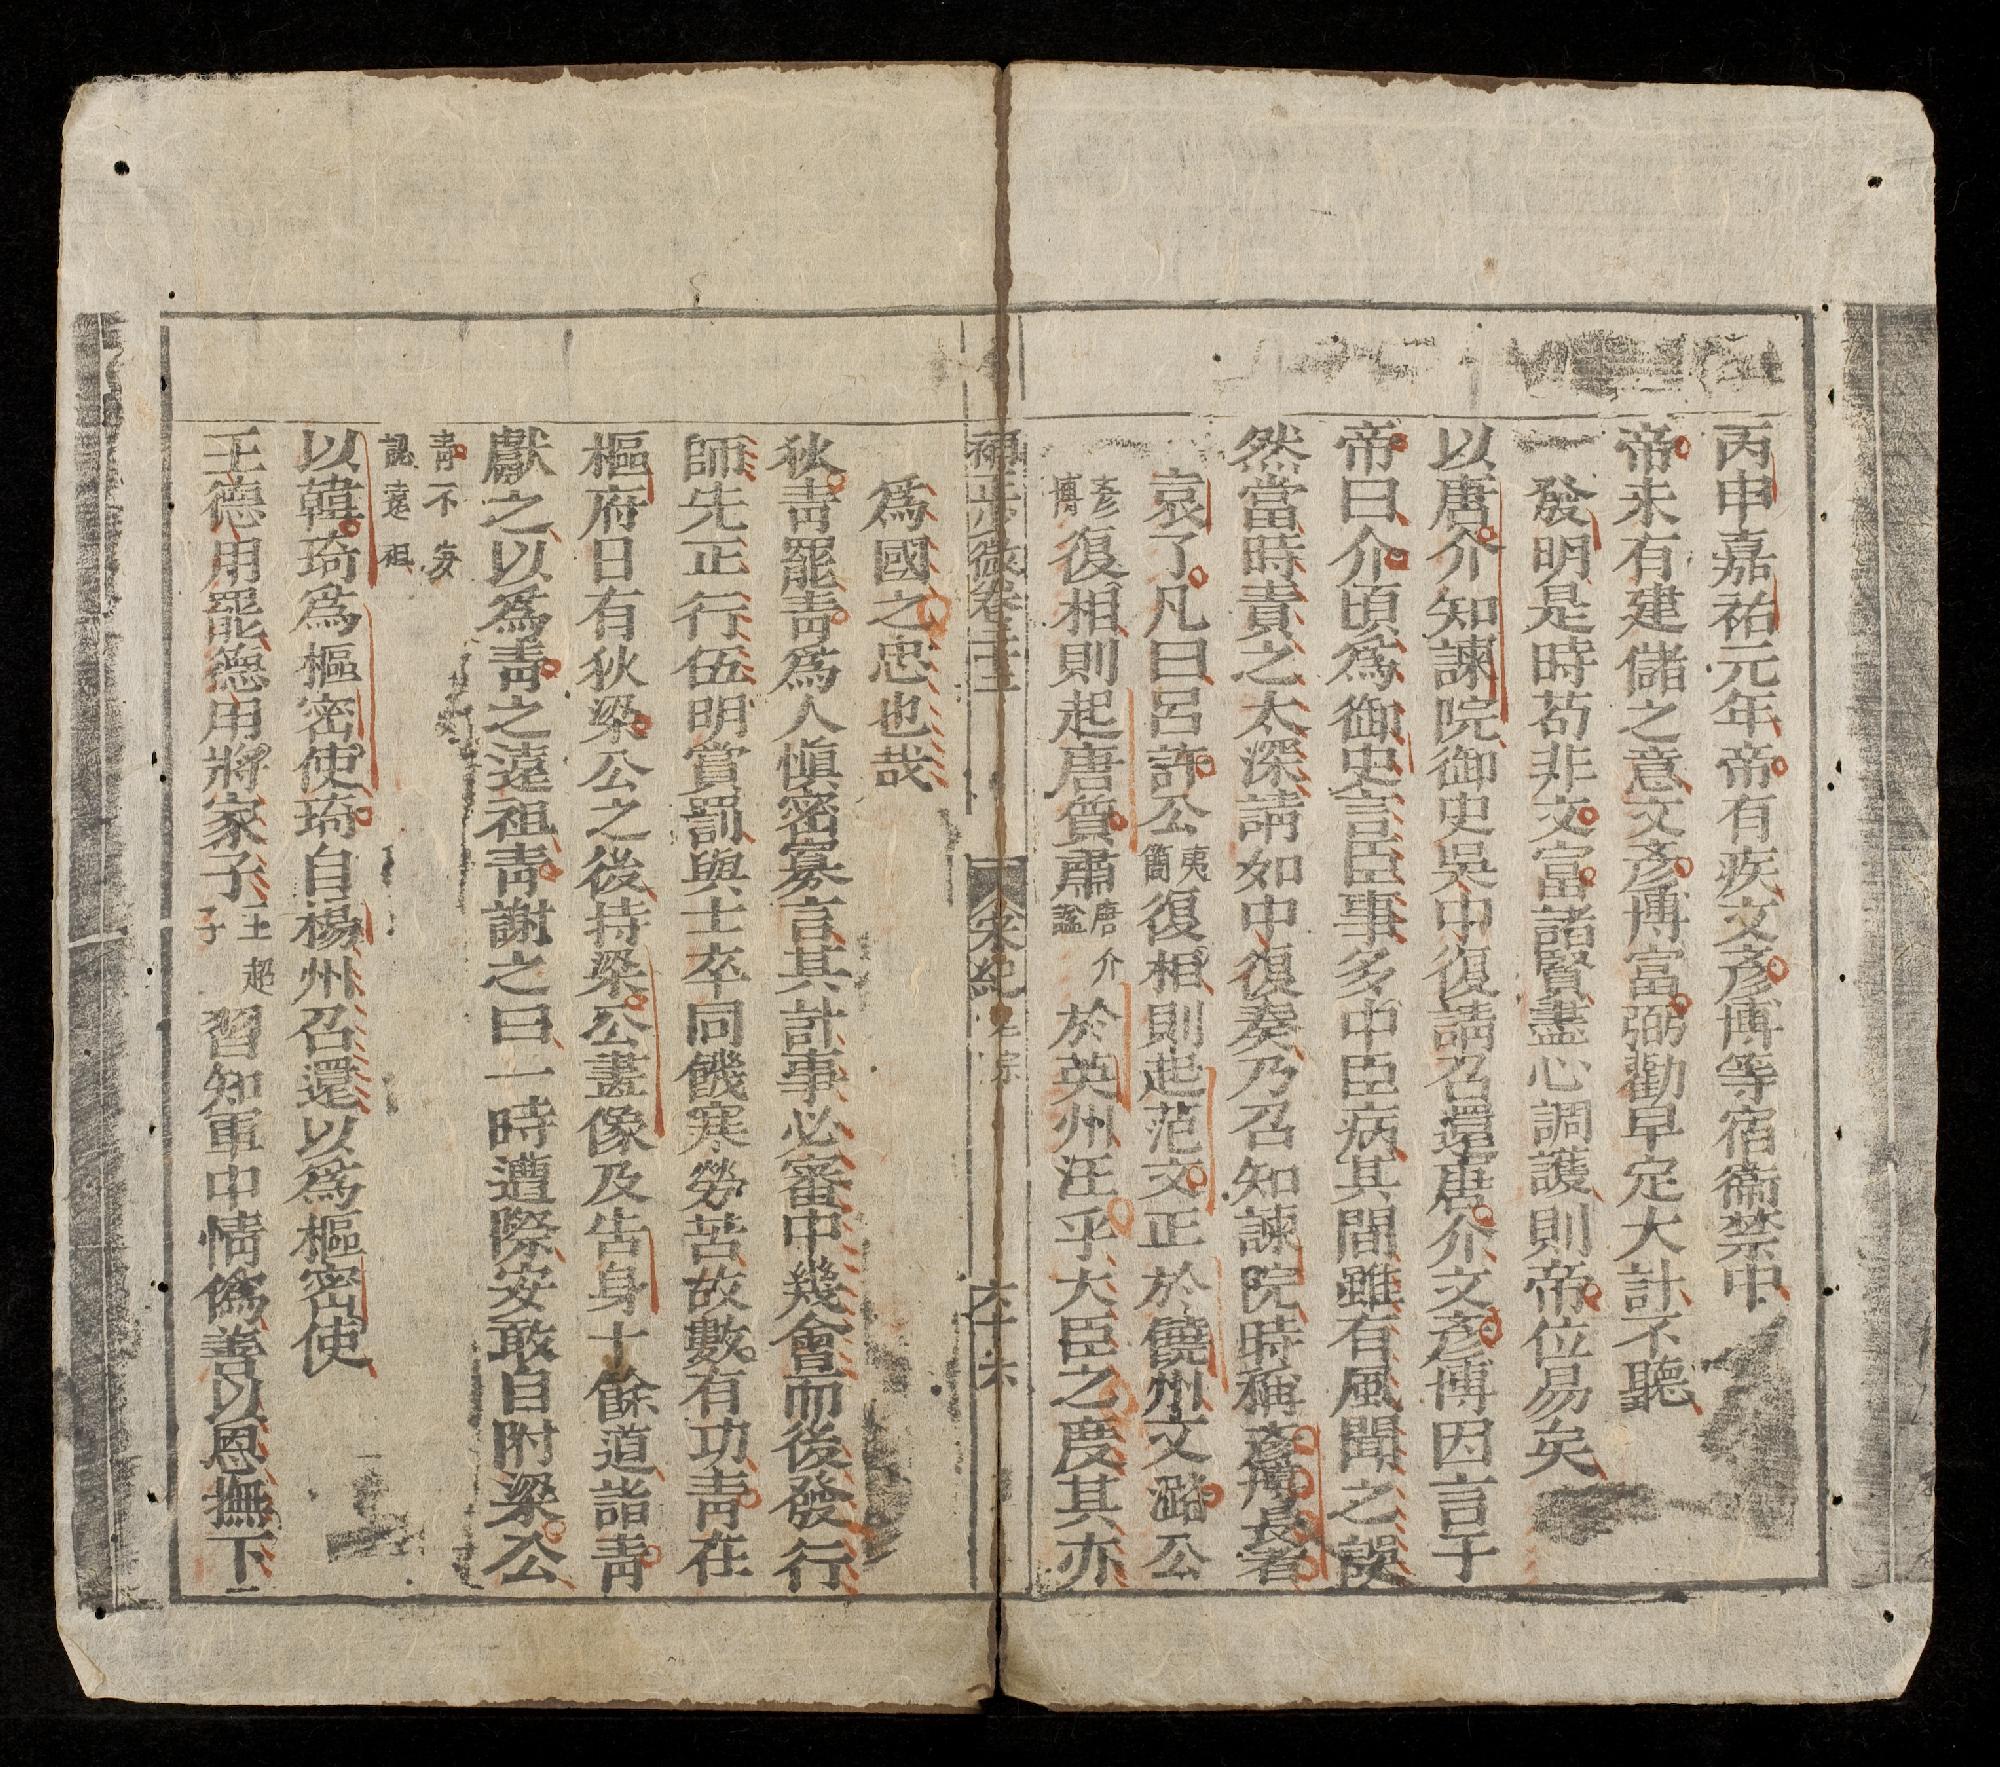 丙申嘉祐元年帝有疾文彥博等宿衞禁中
帝未有建儲之意文彥博富弼勸早定大計不聽
一發明是時苟非文富諸賢盡心調護則帝位易矣
以唐介知諫院御史吳中復請召還唐介文彥博因言于
帝曰介頃爲御史言臣事多中臣病其間雖有風聞之誤
然當時責之太深請如中復奏乃召知諫院時稱彥博長者
哀了凡曰呂許公夷簡復相則起范文正於饒州文潞公
彥博復相則起唐質肅唐介謚於英州汪乎大臣之度其亦
爲國之忠也哉
狄靑罷靑爲人愼密寡言其計事必審中幾會而後發行
師先正行伍明賞罰與士卒同饑寒勞苦故數有功靑在
樞府日有狄梁公之後持梁公畫像及告身十餘道詣靑
獻之以爲靑之遠祖靑謝之曰一時遭際安敢自附梁公
靑不妄認遠祖
以韓琦爲樞密使琦自楊州召還以爲樞密使
王德用罷德用將家子王超子習知軍中情僞善以恩撫下
宋紀
六十六